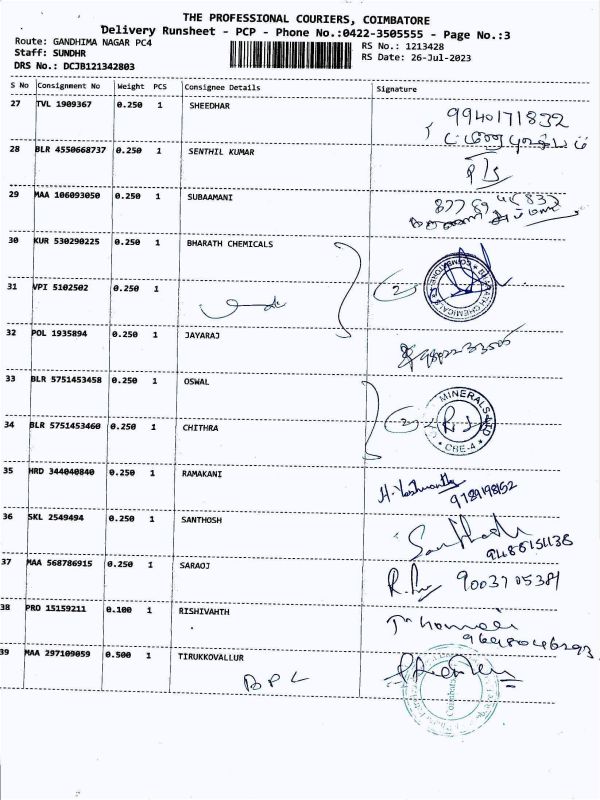 THE PROFESSIONAL COURIERS, COIMBATORE
Delivery Runsheet - PCP - Phone No.:0422-3505555 - Page No.:3
Route: GANDHIMA NAGAR PC4 RS No.: 1213428
Staff: SUNDHR RS Date: 26-Jul-2023
DRS No.: DCJB121342803
S No Consignment No Weight PCS Consignee Details Signature
27 TVL 1909367 0.250 1 SHEEDHAR 9940171832
28 BLR 4550668737 0.250 1 SENTHIL KUMAR
29 MAA 106093050 0.250 1 SUBAAMANI
30 KUR 530290225 0.250 1 BHARATH CHEMICALS
31 VPI 5102502 0.250 1 2
32 POL 1935894 0.250 1 JAYARAJ
33 BLR 5751453458 0.250 1 OSWAL
MINERALS LTD
34 BLR 5751453460 0.250 1 CHITHRA 2
CBE-4
35 HRD 344040840 0.250 1 RAMAKANI
36 SKL 2549494 0.250 1 SANTHOSH
37 MAA 568786915 0.250 1 SARAOJ 9003705381
38 PRO 15159211 0.100 1 RISHIVAHTH
39 MAA 297109059 0.500 1 TIRUKKOVALLUR
BPL